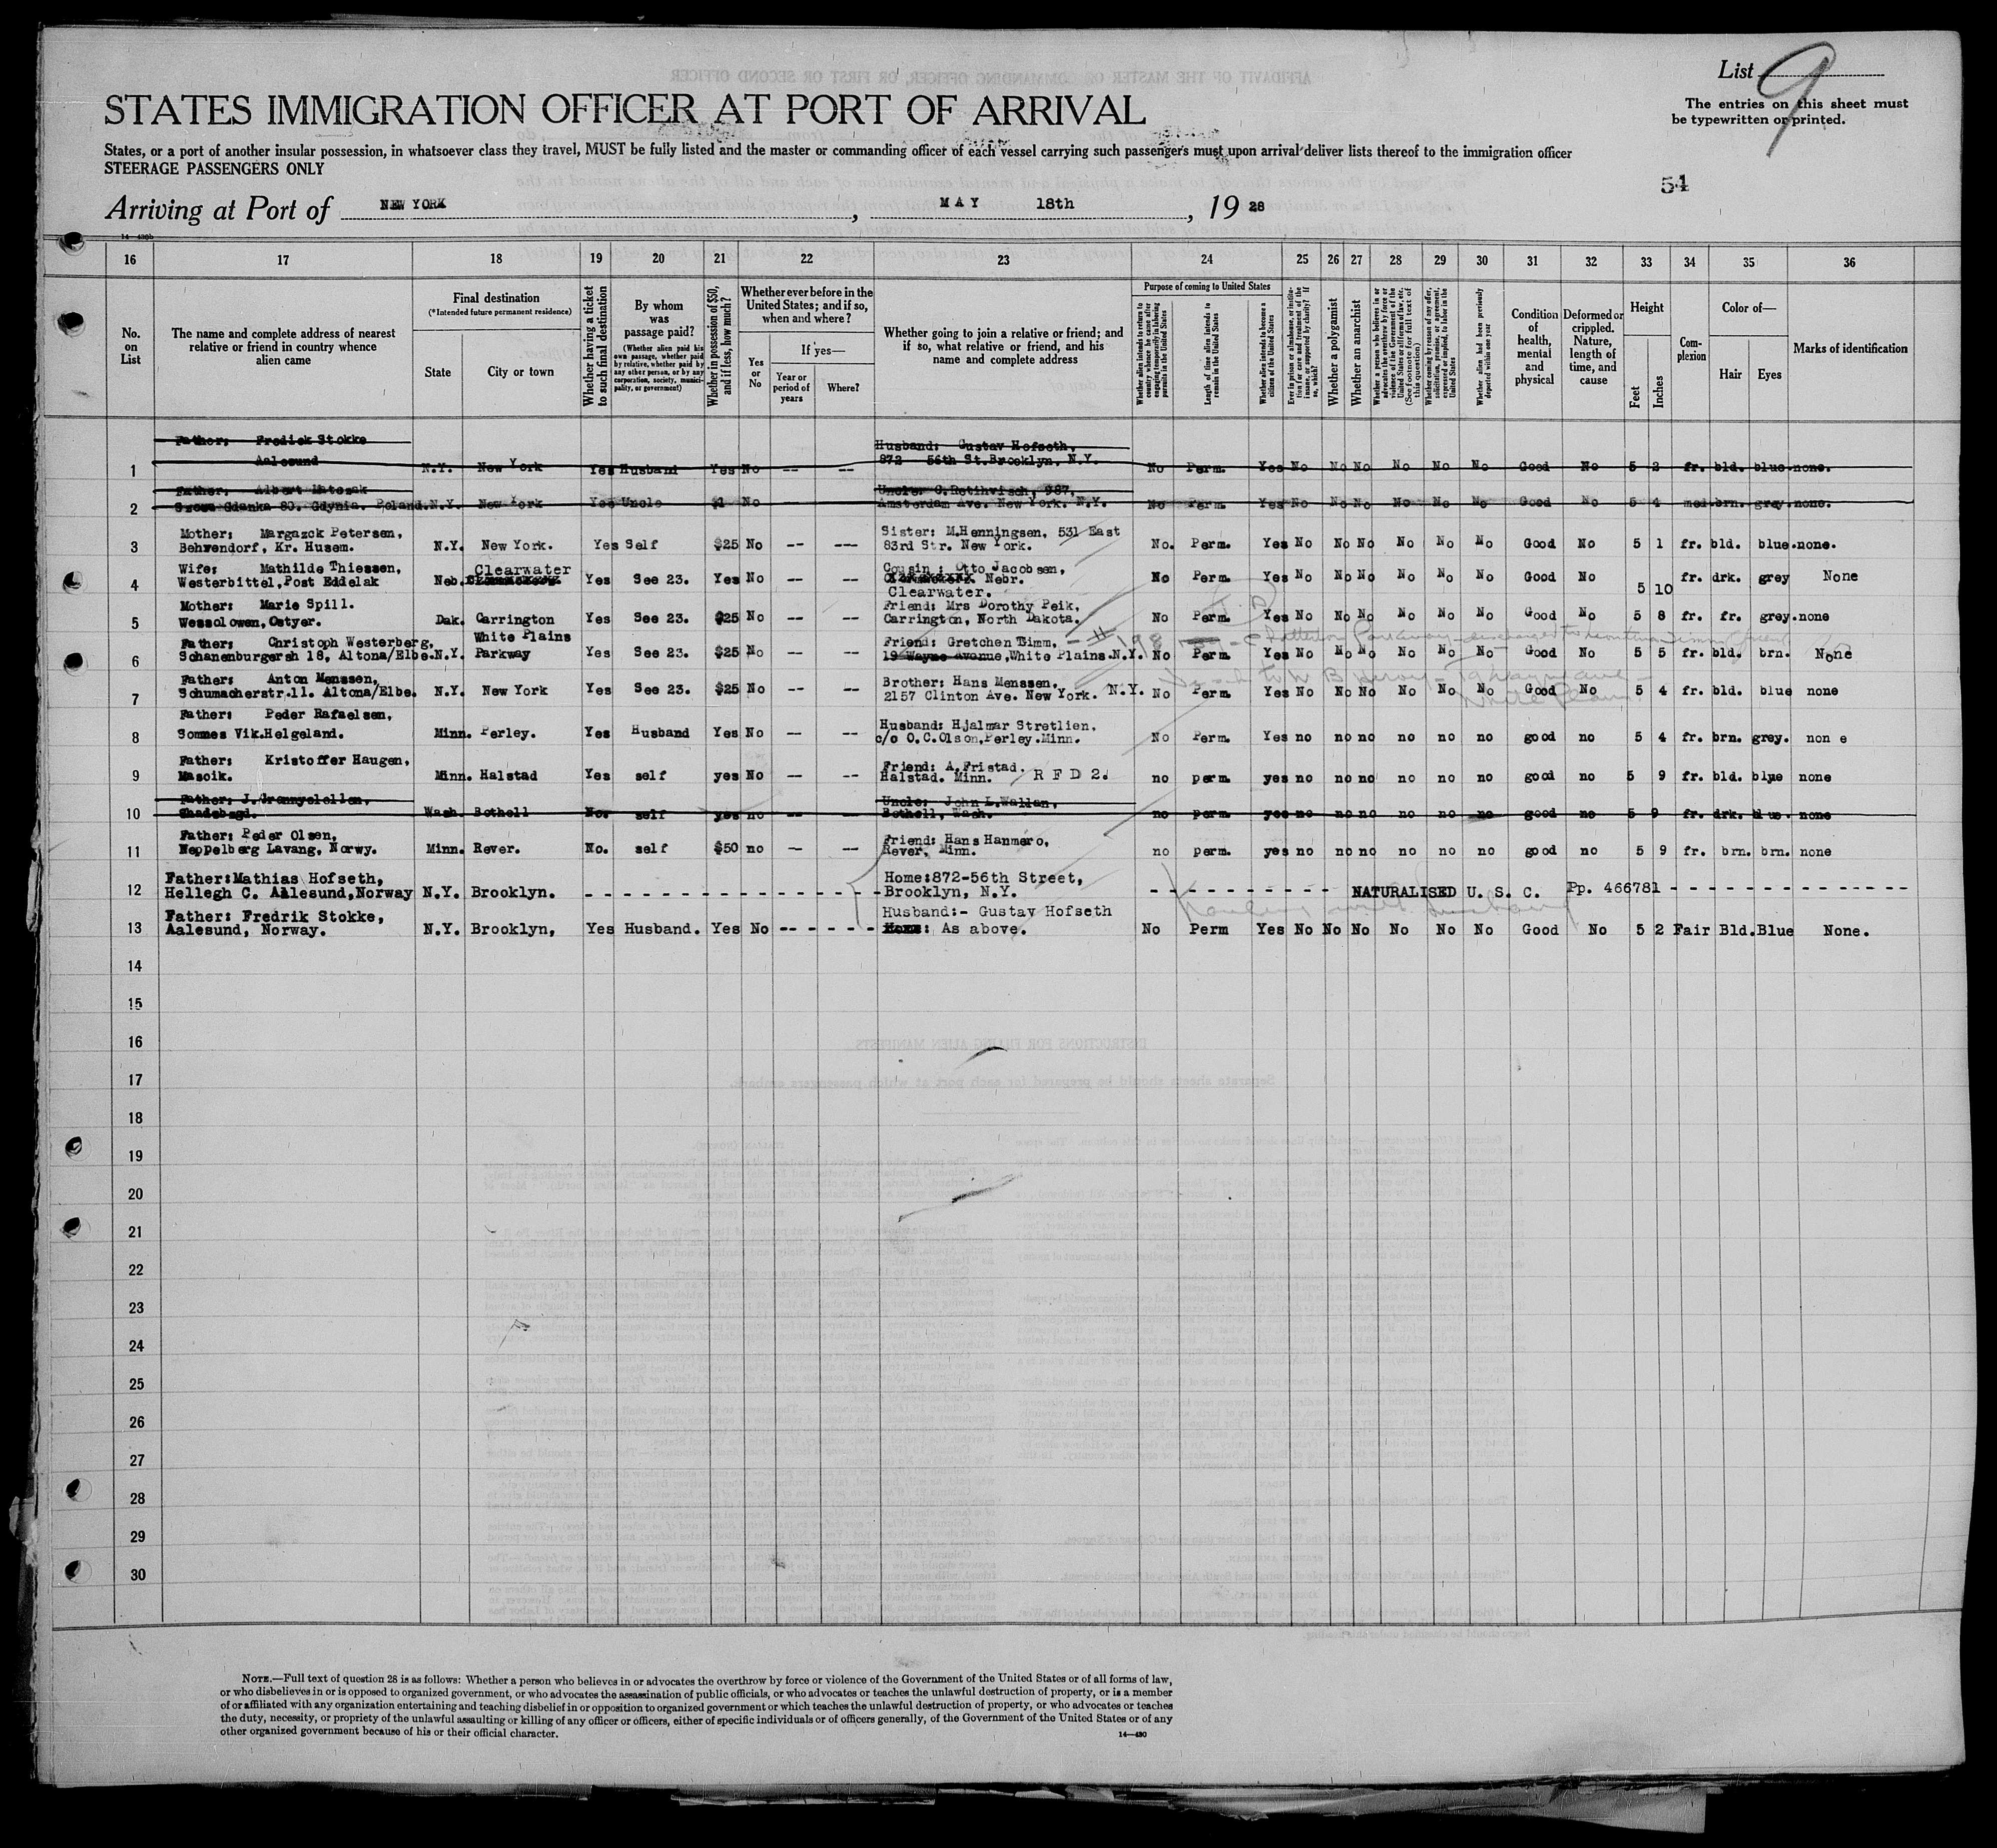 List 9
The entries on this sheet must
be typewritten or printed.
STATES IMMIGRATION OFFICER AT PORT OF ARRIVAL
States, or a port of another insular possession, in whatsoever class they travel, MUST be fully listed and the master or commanding officer of each vessel carrying such passengers must upon arrival deliver lists thereof to the immigration officer
STEERAGE PASSENGERS ONLY
54
Arriving at Port of NEW YORK, MAY 18th, 1928
16 17 18 19 20 21 22 23 24 25 26 27 28 29 30 31 32 33 34 35 36
No. on List
The name and complete address of nearest relative or friend in country whence alien came
Final destination
(*Intended future permanent residence)
State
City or town
Whether having a ticket to such final destination
By whom was passage paid?
(Whether alien paid his own passage, whether paid by relative, whether paid by any other person, or by any corporation, society, municipality, or government)
Whether in possession of $50, and if less, how much?
Whether ever before in the United States; and if so, when and where?
Yes or No
If yes—
Year or period of years
Where?
Whether going to join a relative or friend; and if so, what relative or friend, and his name and complete address
Purpose of coming to United States
Length of time alien intends to remain in the United States
Whether alien intends to become a citizen of the United States
Whether a polygamist
Whether an anarchist
Whether alien had been previously deported within one year
Condition of health, mental and physical
Deformed or crippled. Nature, length of time, and cause
Height
Feet
Inches
Complexion
Color of—
Hair
Eyes
Marks of identification
Father: Fredick Stokke
Aalesund
Husband: Gustav Hofseth,
872 56th St. Brooklyn, N.Y.
1 N.Y. New York Yes Husband Yes No -- -- No Perm. Yes No No No No No No Good No 5 2 fr. bld. blue none.
Father: Albert
2 Gdanka 80. Gdynia. Poland. N.Y. New York Yes Uncle $1 No Amsterdam Ave. New York. N.Y. No Perm. Yes No No No No No No Good No 5 4 med. brn. grey. none.
Mother: Margazck Petersen,
Sister: M.Henningsen, 531 East
3 Behrendorf, Kr. Husem. N.Y. New York. Yes Self $25 No -- --- 83rd Str. New York. No. Perm. Yes No No No No No No Good No 5 1 fr. bld. blue. none.
Wife: Mathilde Thiessen,
Clearwater
Cousin : Otto Jacobsen,
4 Westerbittel, Post Eddelak Neb. Yes See 23. Yes No -- -- Nebr. No Perm. Yes No No No No No No Good No 5 10 fr. drk. grey None
Clearwater.
Mother: Marie Spill.
Friend: Mrs Dorothy Peik,
5 Wessolowen, Ostyer. Dak. Carrington Yes See 23. $25 No -- -- Carrington, North Dakota. No Perm. Yes No No No No No No Good No 5 8 fr. fr. grey. none
Father: Christoph Westerberg,
White Plains
Friend: Gretchen Timm,
6 Schanenburgersh 18, Altona/Elbe. N.Y. Parkway Yes See 23. $25 No -- -- 19 Wayne Avenue, White Plains. N.Y. No Perm. Yes No No No No No No Good No 5 5 fr. bld. brn. None
Father: Anton Menssen,
Brother: Hans Menssen,
7 Schumacherstr.11. Altona/Elbe. N.Y. New York Yes See 23. $25 No -- -- 2157 Clinton Ave. New York. N.Y. No Perm. Yes No No No No No No Good No 5 4 fr. bld. blue none
Father: Peder Rafaelsen,
Husband: Hjalmar Stretlien.
8 Sommes Vik. Helgeland. Minn. Perley. Yes Husband Yes No -- -- c/o O.C.Olson, Perley. Minn. No Perm. Yes no no no no no no good no 5 4 fr. brn. grey. none
Father: Kristoffer Haugen,
Friend: A.Fristad.
9 Masoik. Minn. Halstad Yes self yes No -- -- Halstad. Minn. R F D 2. no perm. yes no no no no no no good no 5 9 fr. bld. blue none
Father: J.
Uncle: John L.Wallan,
10 Wash. Bothell No. self yes no -- -- Bothell, Wash. no perm. yes no no no no no no good no 5 9 fr. drk. blue. none
Father: Peder Olsen,
Friend: Hans Hanmero,
11 Neppelberg Lavang, Norwy. Minn. Rever. No. self $50 no -- -- Rever. Minn. no perm. yes no no no no no no good no 5 9 fr. brn. brn. none
Father:Mathias Hofseth,
Home:872-56th Street,
12 Hellegh C. Aalesund,Norway N.Y. Brooklyn. Brooklyn, N.Y. NATURALISED U. S. C. Pp. 466781
Father: Fredrik Stokke,
Husband:- Gustav Hofseth
13 Aalesund, Norway. N.Y. Brooklyn, Yes Husband. Yes No As above. No Perm Yes No No No No No No Good No 5 2 Fair Bld. Blue None.
14
15
16
17
18
19
20
21
22
23
24
25
26
27
28
29
30
NOTE.—Full text of question 28 is as follows: Whether a person who believes in or advocates the overthrow by force or violence of the Government of the United States or of all forms of law,
or who disbelieves in or is opposed to organized government, or who advocates the assassination of public officials, or who advocates or teaches the unlawful destruction of property, or is a member
of or affiliated with any organization entertaining and teaching disbelief in or opposition to organized government or which teaches the unlawful destruction of property, or who advocates or teaches
the duty, necessity, or propriety of the unlawful assaulting or killing of any officer or officers, either of specific individuals or of officers generally, of the Government of the United States or of any
other organized government because of his or their official character.
14—430